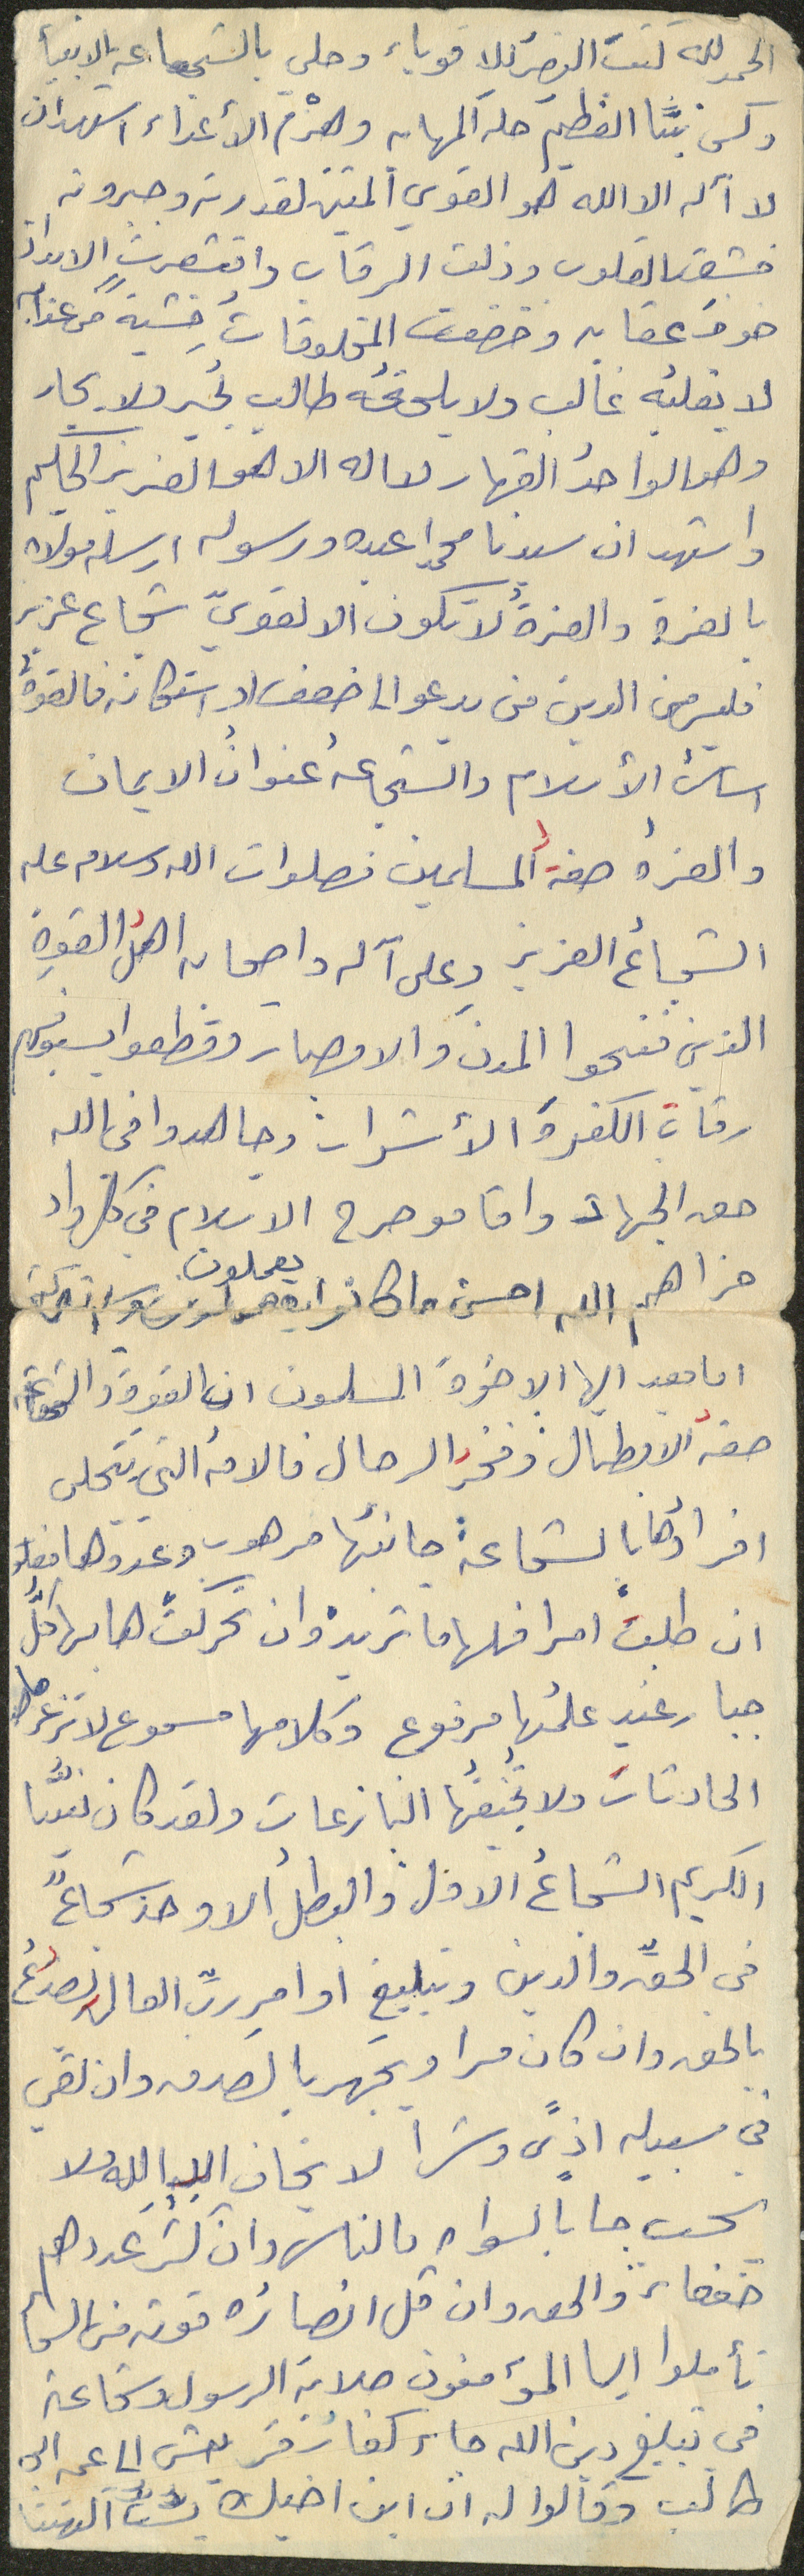 الحمد لله كتب النصر للاقوياء وحلي بالشجاعة الانبياء
وكسى نبيَّنا العظيم حلة المهابه وهزم الأعداء اشهد ان
لا آله الا الله هو القوي المتين لقدرته وجبروته
خشعت القلوب وذلت الرقاب واقشعرت الابدان
خوفَ عقابه وخضعت المخلوقاتُ خشيةً من عذابه
لا يغلبه غالب ولا يلحقه طالب يُجير ولا يجار
وهو الواحدُ القهار لا اله الا هو العزيز الحكيم
واشهد ان سيدنا محمدا عبده ورسوله ارسله مولاه
بالعزة والعزةُ لا تكون الا لقويّ شجاع عزيز
فليس من الدين من يدعو الى ضعف او استكانه فالقوةُ
اساسُ الأسلام والشجاعةُ عنوانُ الايمان
والعزةُ صفةُ المسلمين فصلوات الله وسلامه على
الشجاعُ العزيز وعلى آله واصحابه اهلُ القوةِ
الذين فتحوا المدنَ والامصار وقطعوا بسيوفهم
رقاب الكفرةَ الأشرارَ وجاهدوا في الله
حق الجهاد واقاموا صرح الاسلام في كل واد
جزاهم الله احسن ما كانوا يعملون
اما بعد ايها الاخوة المسلمون ان القوةَ والشجاعة
صفةُ الابطال وفخرُ الرجال فالامةُ التي يتحلى
افرادُها بالشجاعة جانبُها مرهوب وعدوها مغلوب
ان طلبت امرا فلها ما تريد وان تحركتْ هابها كلُّ
جبار عنيد علمُها مرفوع وكلامها مسموع لا تزعزعها
الحادثات ولا تُخيفُها النازعات ولقد كان نبيُّنا
الكريم الشجاعُ الاول والبطلُ الاوحد شجاعٌ
في الحقّ والدين وتبليغ اوامرِ ربِّ العالمين يصدعُ
بالحق وان كان مرا ويجهر بالصدق وان لقي
في سبيله اذىً وشرا لا يخاف الا الله ولا
يحسب حسابا لسواه فالناس وان كثر عددهم
ضعفاء والحق وان قل انصاره قوته من السماء
تأملوا ايها المؤمنون صلابة الرسول وشجاعة
في تبليغ دين الله جاء كفارُ قريش الى عمه ابي
طالب وقالوا له ان ابن اخيك الهتنا